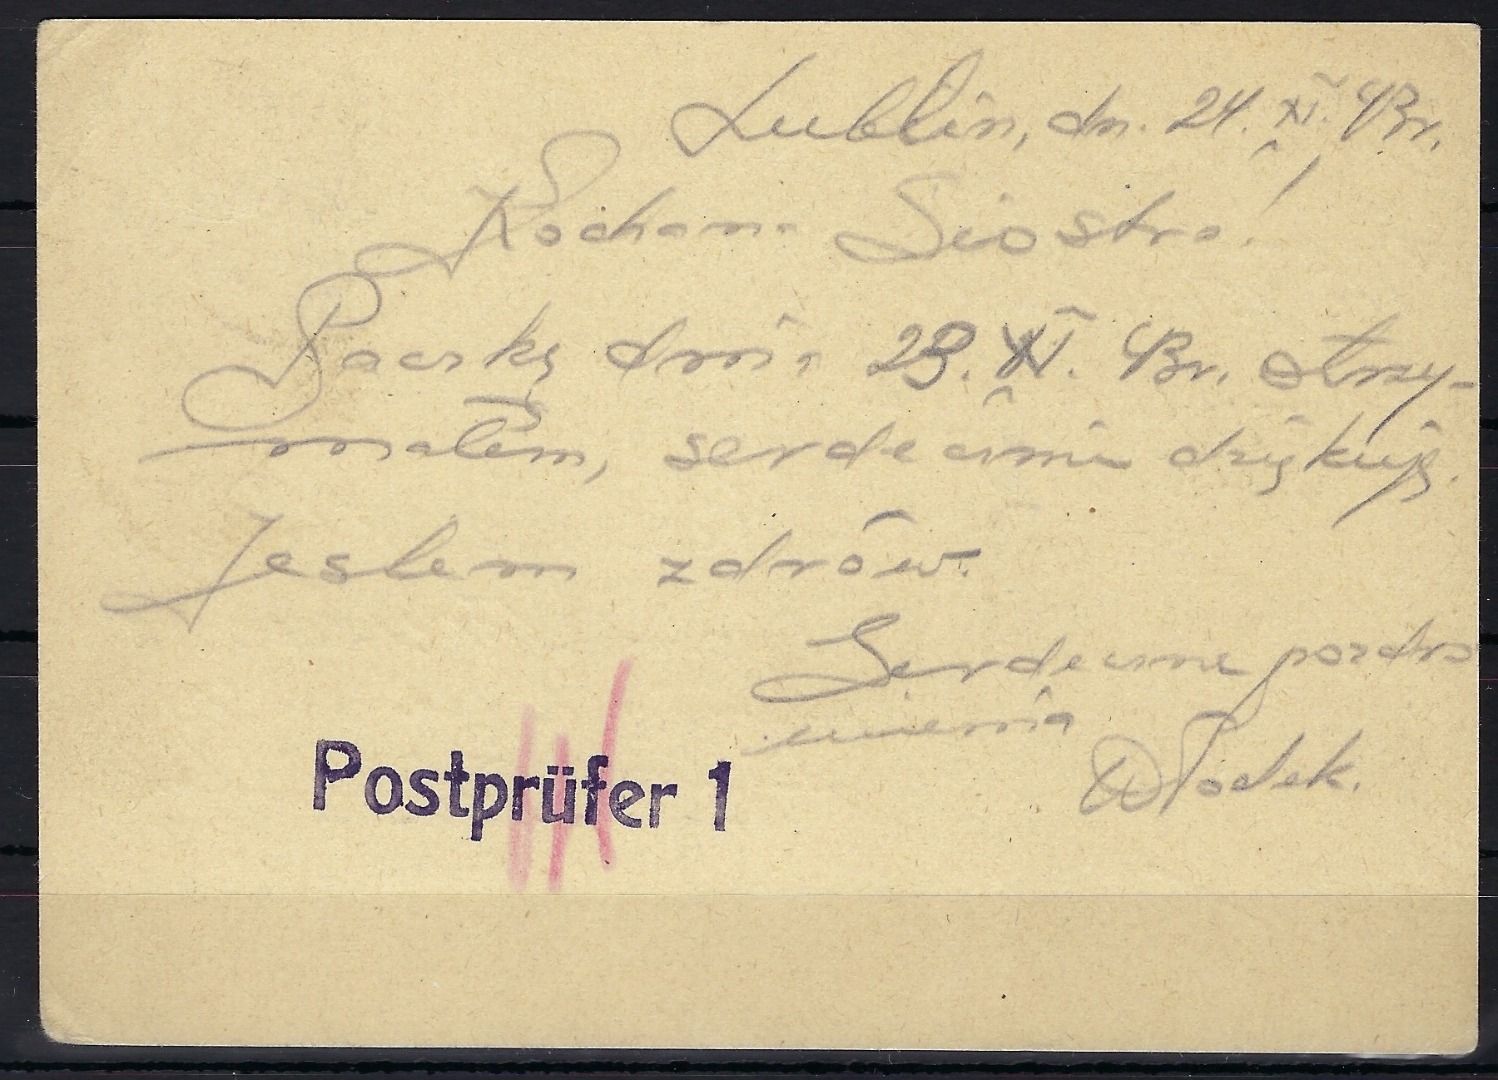 Lublin, dn. 24. XI. 43r.
Kochana Siostro!
Paczkę dnia 23. XI. 43r. otrzy-
małem, serdecznie dziękuję.
Jestem zdrów.
Serdeczne pozdro
wienia
Włodek.
Postprüfer 1